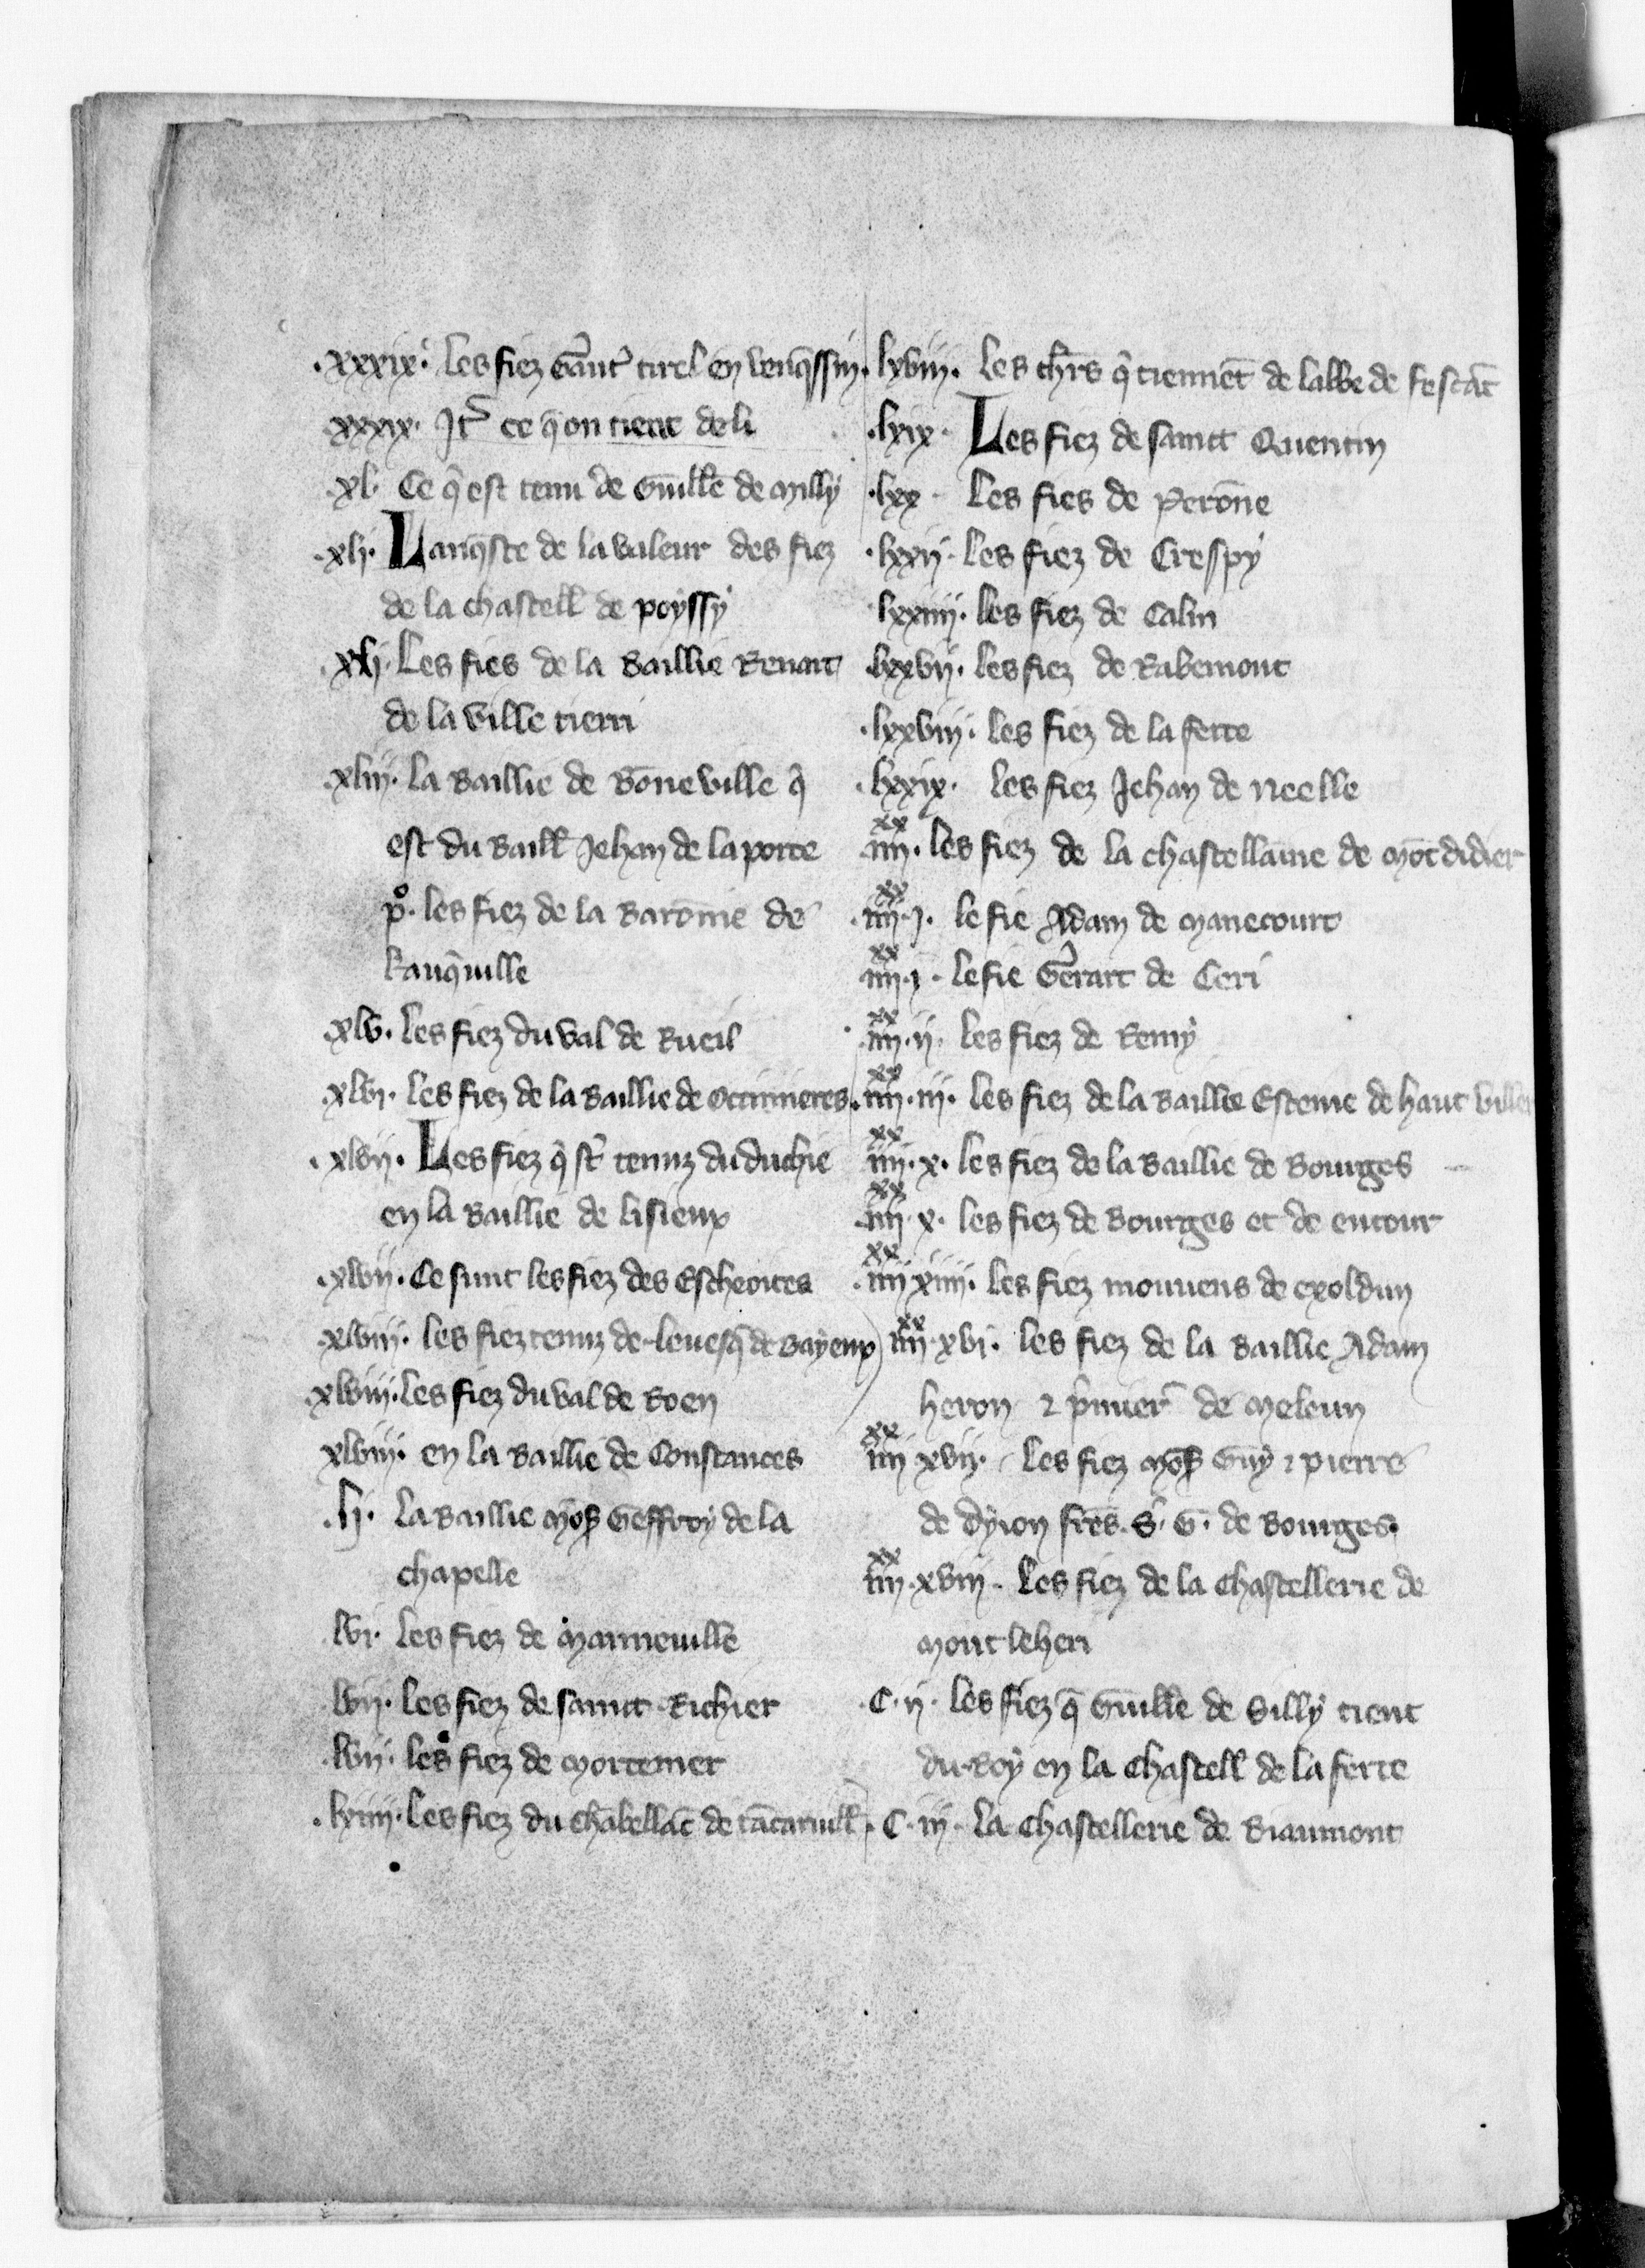 .xxxix. les fiez Gaut' tirel en venq̃ssin.
xxxix. It' ce q̃ on tient de li
.xl. Ce q̃ est tenu de Guill̃e de Milly
.xlj. Lanq̃ste de la valeur des fiez
de la chastell' de poyssy
.xlj. Les fies de la Baillie Renart
de la ville tierri
.xliij. la Baillie de Bõneville q̃
est du Baill' Jehan de la porte
p°. les fiez de la Barõnie de
kauq̃uille
.xlv. les fiez du val de Rueil
.xlvj. les fiez de la Baillie de
.xlvij. Les fiez q̃ st̃ tenuz du duchie
en la Baillie de lisieux
.xlvij. Ce sunt les fiez des Escheoites
.xlviij. les fiez tenuz de levesq̃ de Bayeux
xlviiij. les fiez du val de Roen
xlviiij. en la Baillie de Constances
.lj. la Baillie Geffroy de la
chapelle
.lvj. les fiez de Manneville
lvij. les fiez de sainct Richier
.lvij. les fiez de Mortemer
.lxiiij. les fiez du chãbellãc de tãcaruill'
lxviij. les ch'rs q̃ tiennẽt de labbe de fescãt
.lxix. Les fiez de sainct Quentin
.lxx. les fies de Perõne
.lxxij. les fiez de Crespy
lxxiiij. les fiez de Calni
.lxxvij. les fiez de Ribemont
.lxxviij. les fiez de la ferte
.lxxix. les fiez Jehan de Neelle
iiij^xx. les fiez de la chastellanie de Mõtdidier
.iiij^xx.j. le fie Adam de Manecourt
iiij^xx.j. le fie Gerart de Ceri
iiij^xx.ij. les fiez de Remy
iiij^xx.iij. les fiez de la Baillie Estene de haut viller
iiij^xx.x. les fiez de la Baillie de Bourges
.iiij^xx.x. les fiez de Bourges et de entour
.iiij^xx xiiij. les fiez mouvens de exoldun
iiij^xx.xvj. les fiez de la Baillie Adam
heron ⁊ de Meleun
iiij^xx xvij. les fiez Guy ⁊ pierre
de dyion fr̃es. S' G. de Bourges.
iiij^xx.xviij. les fiez de la Chastellerie de
Mont leheri
.C.ij. les fiez q̃ Guill̃e de Silly tient
du Roy en la Chastell' de la ferte
.C.iij. la Chastellerie de Biaumont